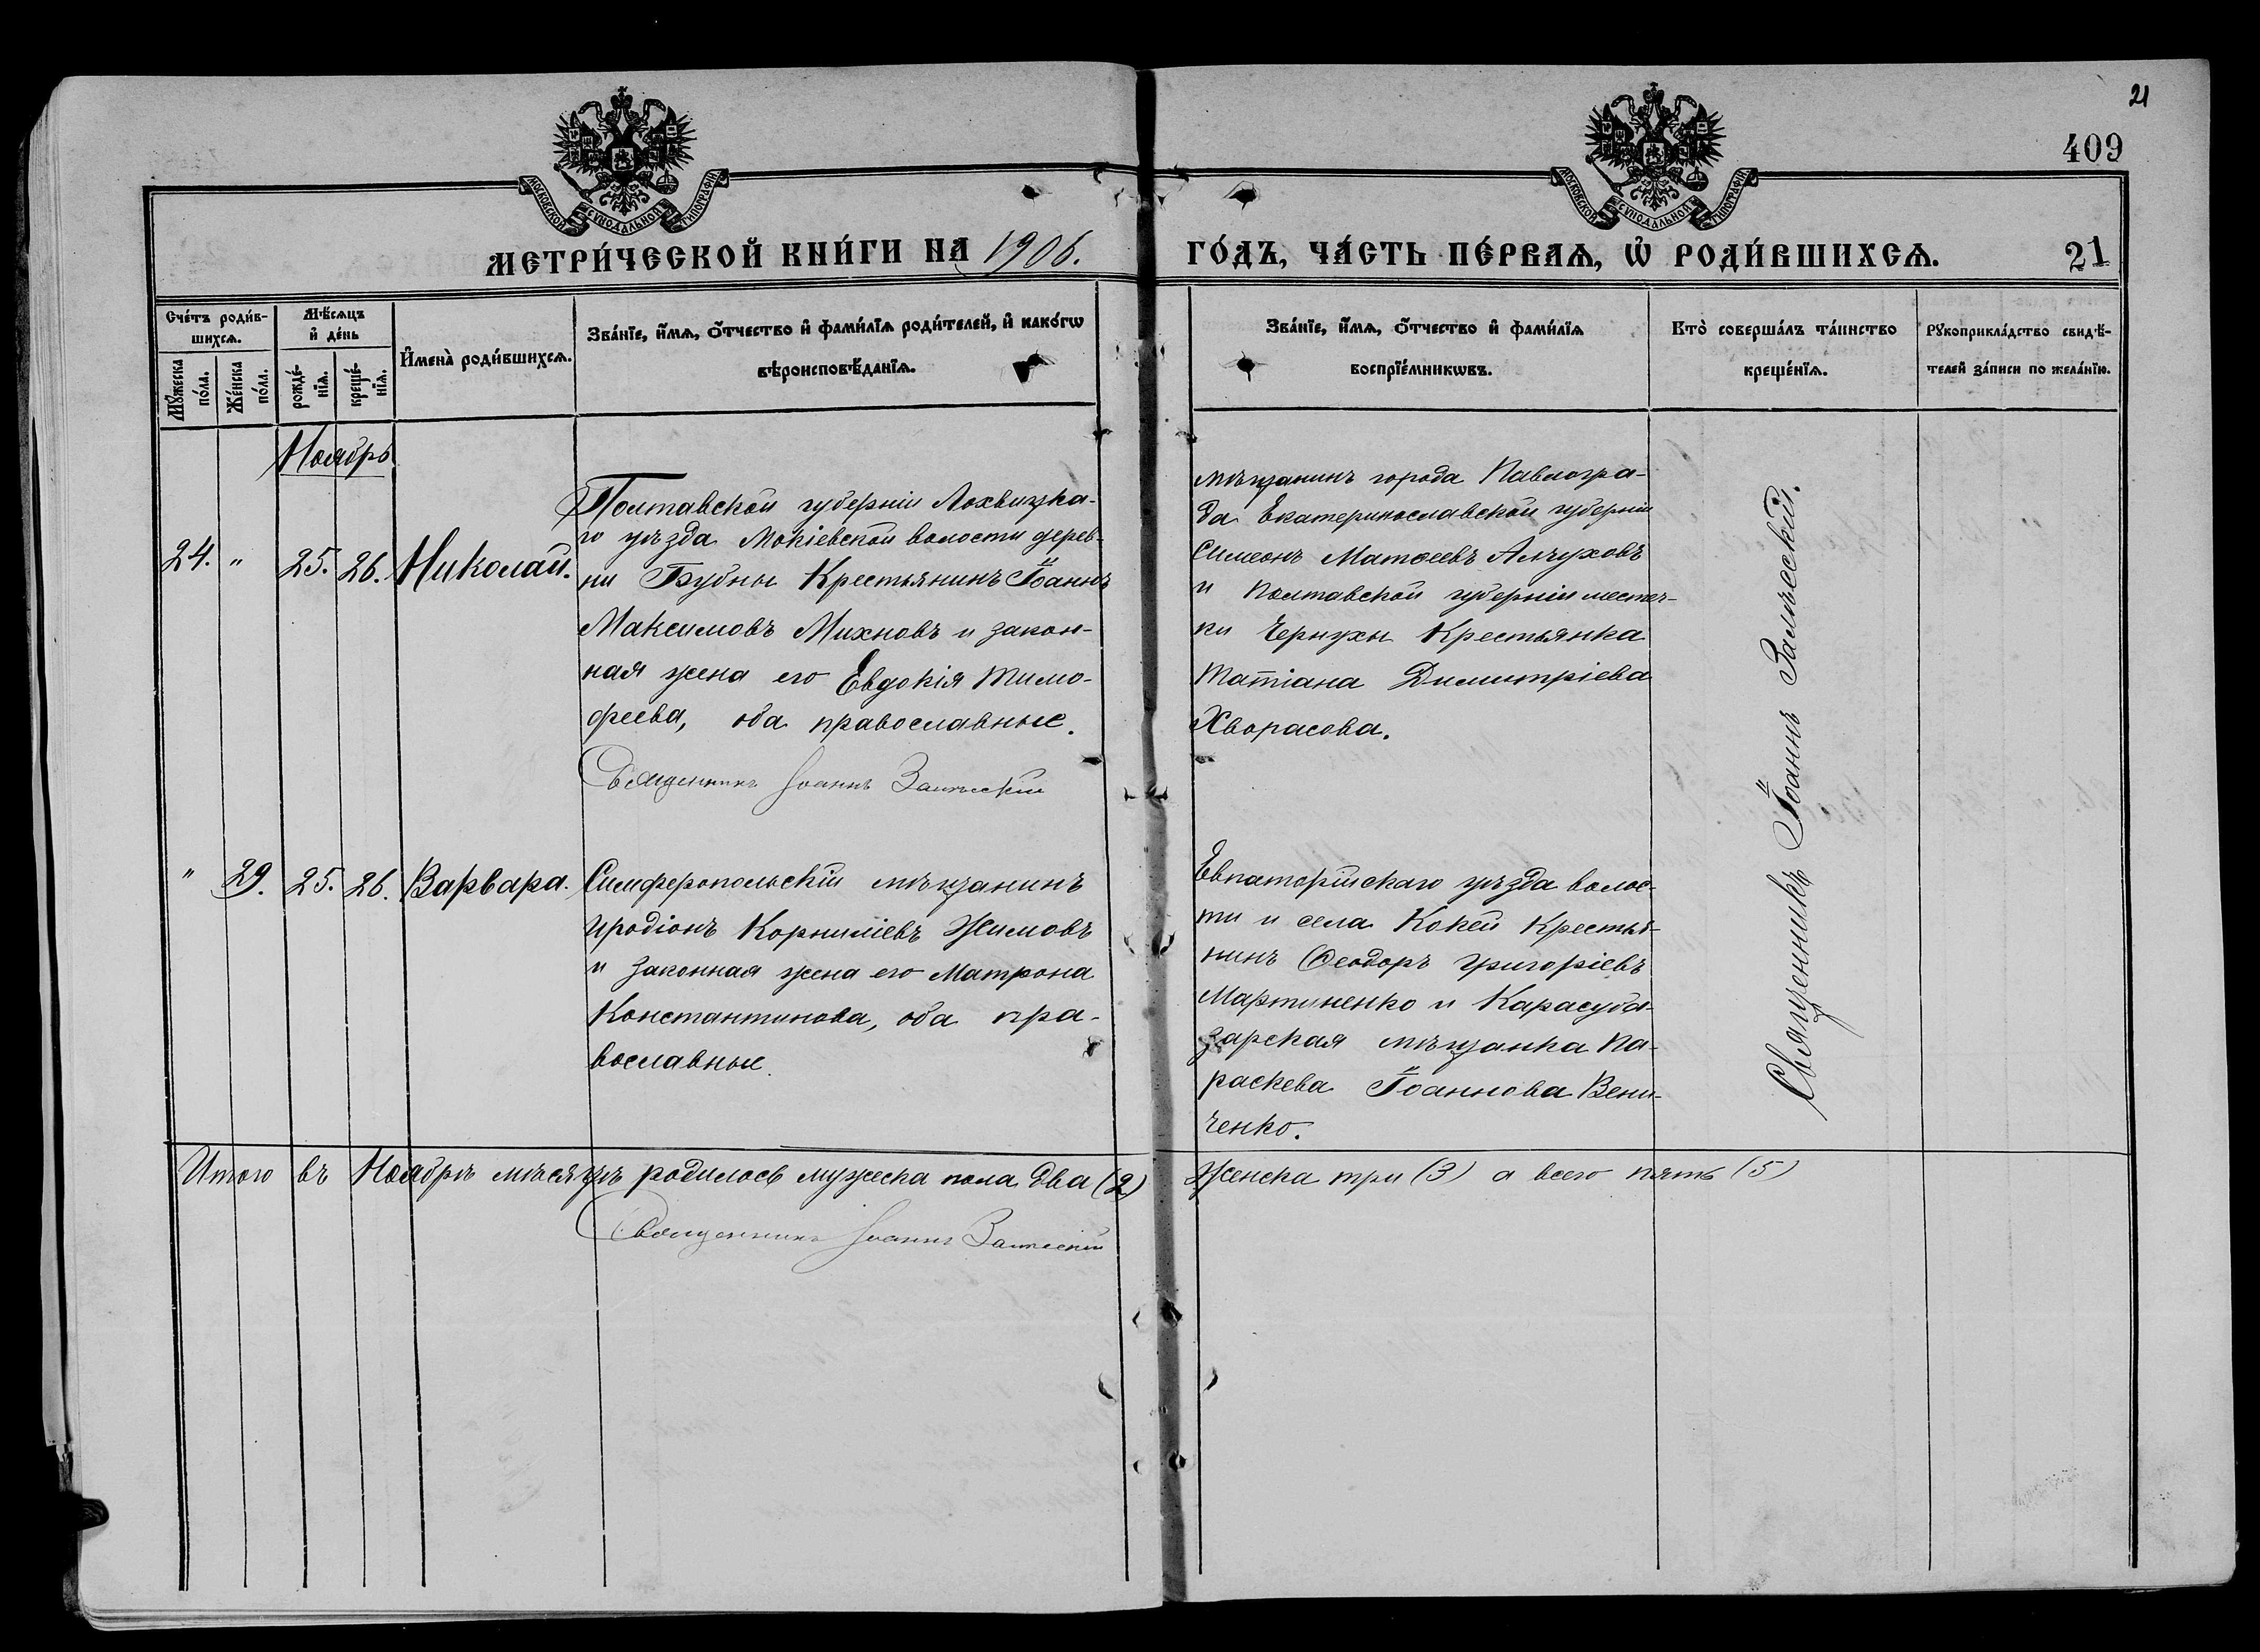 21
409
МОСКОВСКОЙ СУНОДАЛЬНОЙ ТИПОГРАФІИ
МОСКОВСКОЙ СУНОДАЛЬНОЙ ТИПОГРАФІИ
МЕТРИ́ЧЕСКОЙ КНИ́ГИ НА 1906.
ГО́ДЪ, ЧА́СТЬ ПЕ́РВАѦ, Ѡ҆ РОДИ́ВШИХСѦ.
21
Сче́тъ роди́в-
шихсѧ.
Мꙋ́жеска
по́ла.
Же́нска
по́ла.
Мѣ́сѧцъ
и҆ де́нь
рожде́-
нїѧ.
креще́-
нїѧ.
И҆мена̀ роди́вшихсѧ.
Зва́нїе, и҆́мѧ, ѻ҆́тчество и҆ фами́лїѧ роди́телей, и҆ како́гѡ
вѣроисповѣ́данїѧ.
Зва́нїе, и҆́мѧ, ѻ҆́тчество и҆ фами́лїѧ
воспрїе́мникѡвъ.
Кто̀ соверша́лъ та́инство
креще́нїѧ.
Рꙋкоприкла́дство свидѣ́-
телей за́писи по жела́нїю.
Ноябрь
24. " 25. 26. Николай.
Полтавской губерніи Лохвицка-
го уѣзда Мокіевской волости дерев-
ни Бубны Крестьянинъ Іоаннъ
Максимовъ Михновъ и закон-
ная жена его Евдокія Тимо-
феева, оба православные.
Священникъ Іоаннъ Залѣсскій
мѣщанинъ города Павлогра-
да Екатеринославской губерніи
Симеонъ Матѳеевъ Алчуховъ
и Полтавской губерніи местеч-
ки Чернухи Крестьянка
Татіана Димитріева
Хворасова.
" 29. 25. 26. Варвара.
Симферопольскій мѣщанинъ
Иродіонъ Корниліевъ Жимовъ
и законная жена его Матрона
Константинова, оба пра-
вославные.
Евпаторійскаго уѣзда волос-
ти и села Кокей Крестья-
нинъ Ѳеодоръ Григоріевъ
Мартиненко и Карасуба-
зарская мѣщанка Па-
раскева Іоаннова Вени-
ченко.
Священникъ Іоаннъ Залѣсскій.
Итого въ Ноябрѣ мѣсяцѣ родилось мужеска пола два (2) Женска три (3) а всего пять (5)
Священникъ Іоаннъ Залѣсскій